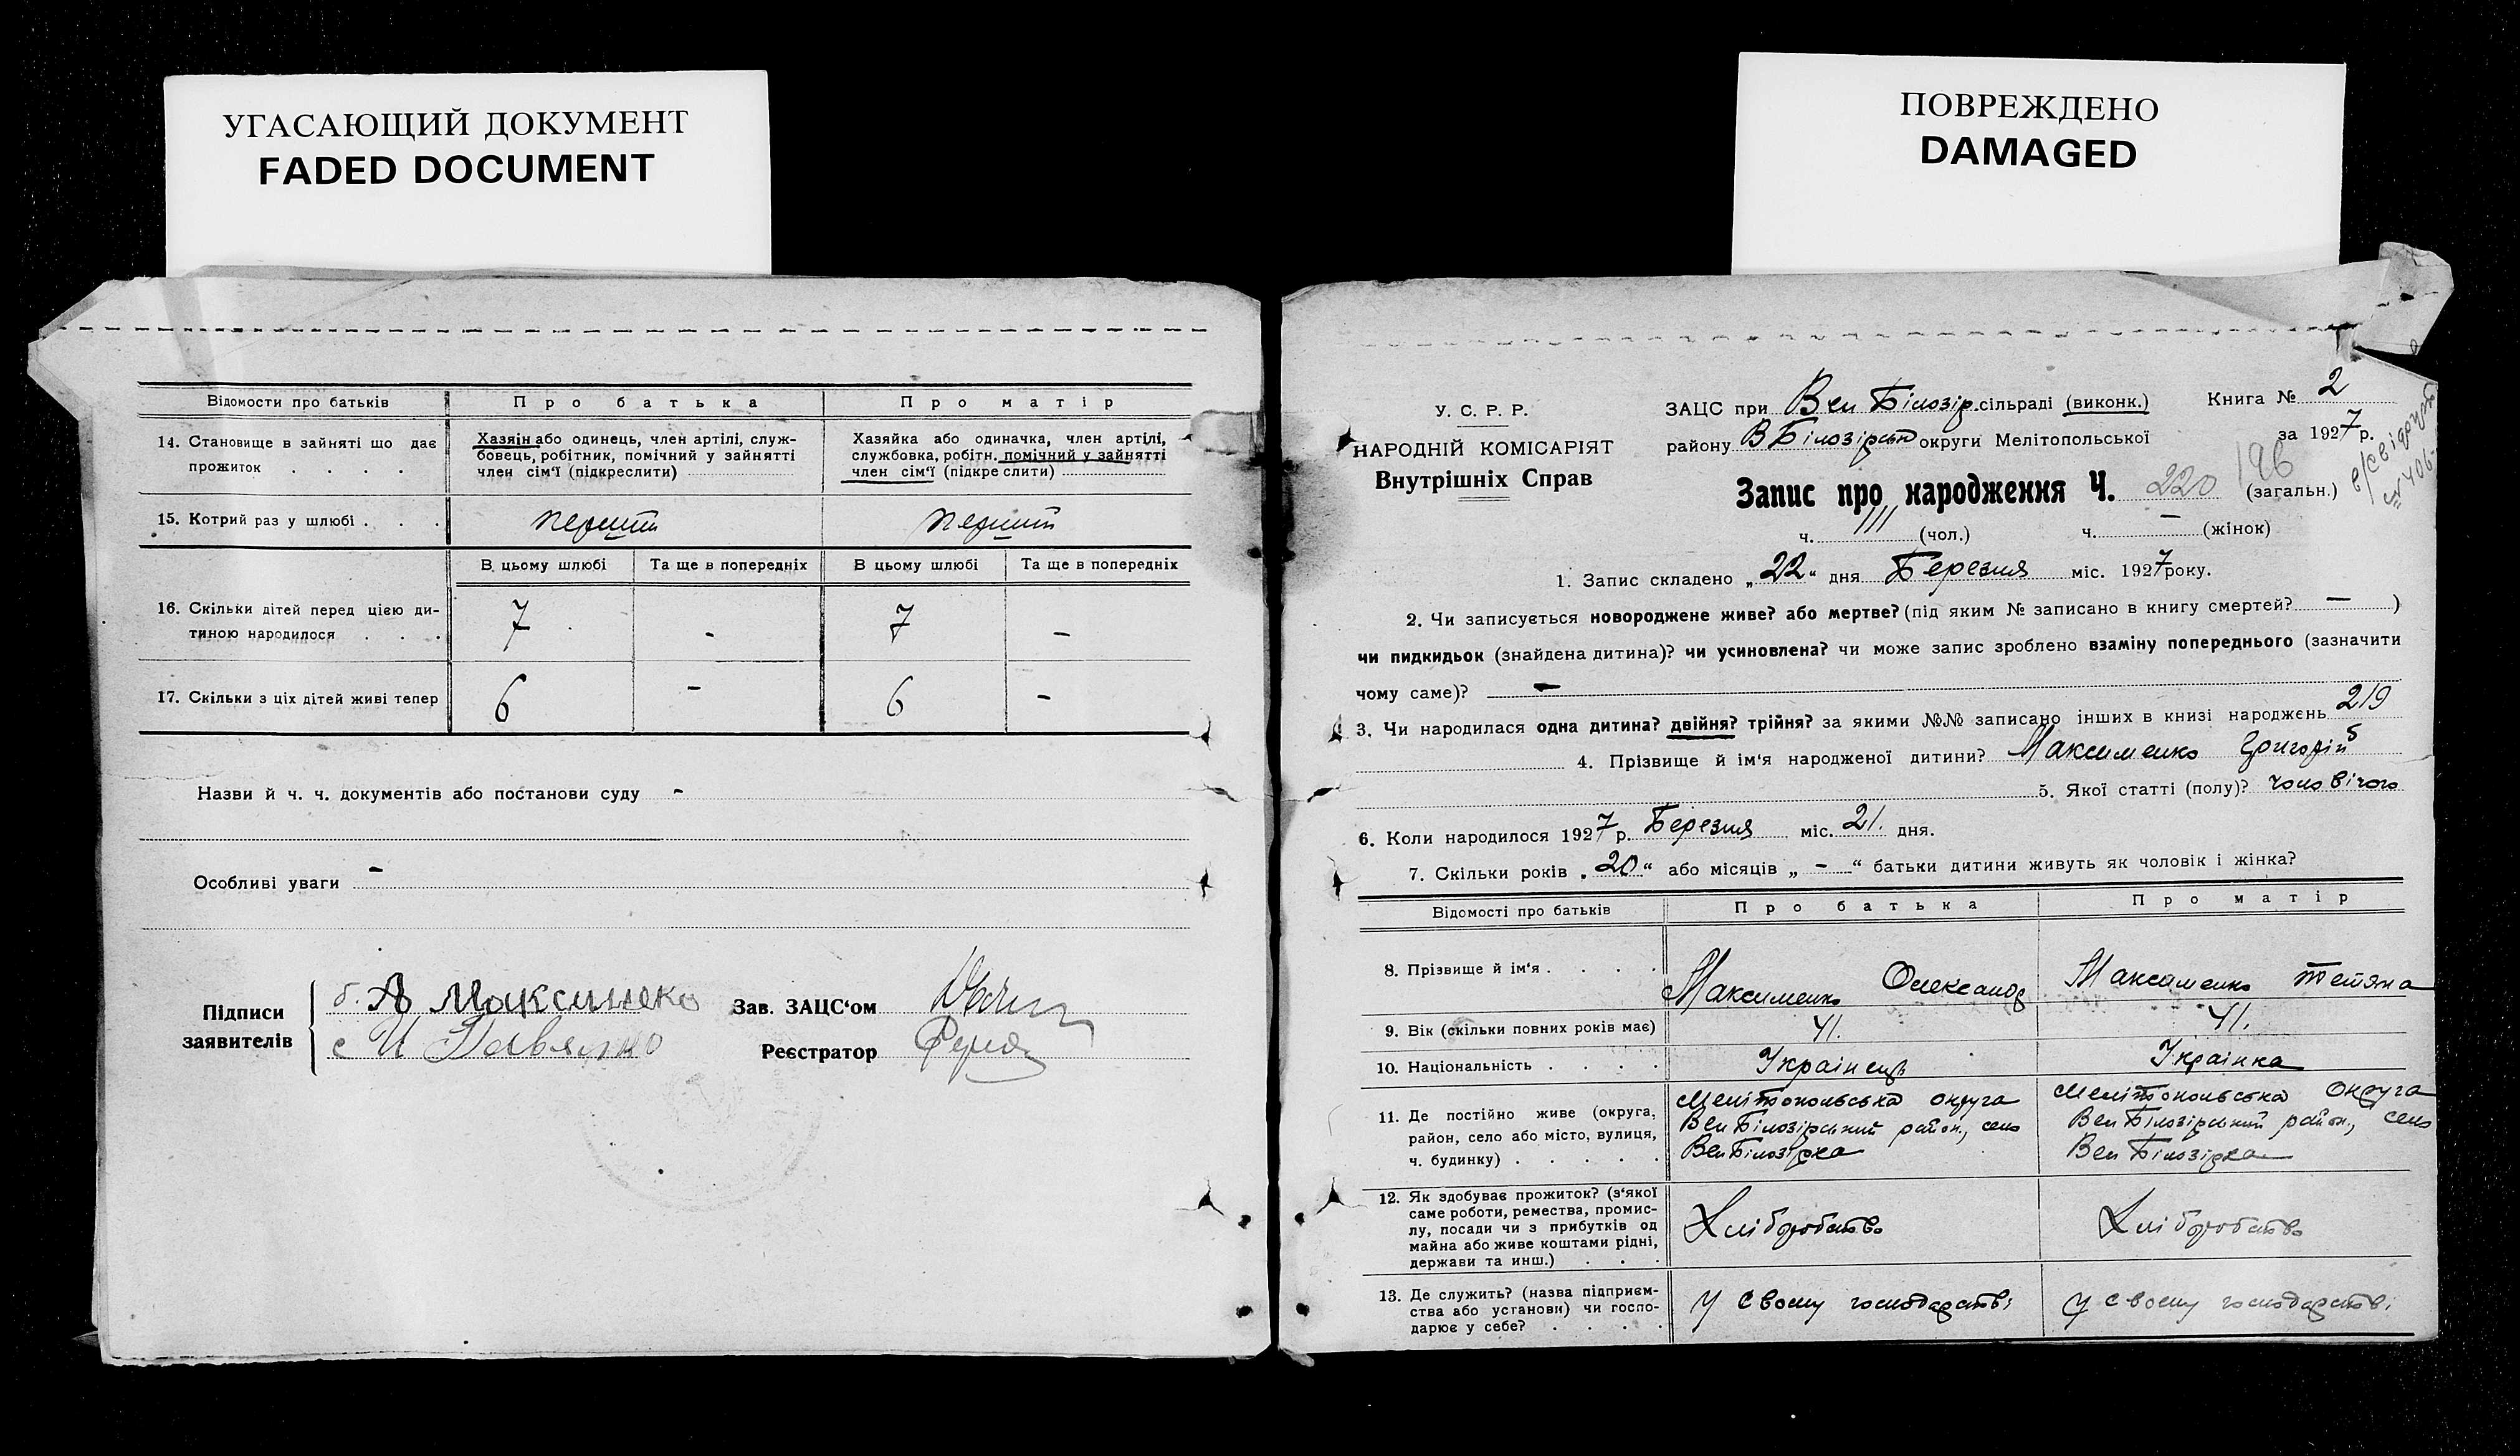 УГАСАЮЩИЙ ДОКУМЕНТ
FADED DOCUMENT
ПОВРЕЖДЕНО
DAMAGED
Відомости про батьків
Про батька
Про матір
14. Становище в зайняті що дає
прожиток . . . .
Хазяін або одинець, член артілі, служ-
бовець, робітник, помічний у зайнятті
член сім'ї (підкреслити)
Хазяйка або одиначка, член артілі,
службовка, робітн. помічний у зайнятті
член сім'ї (підкреслити)
15. Котрий раз у шлюбі . . .
перший
перший
В цьому шлюбі
Та ще в попередніх
В цьому шлюбі
Та ще в попередніх
16. Скільки дітей перед цією ди-
тиною народилося . . .
7
-
7
-
17. Скільки з ціх дітей живі тепер
6
-
6
-
Назви й ч. ч. документів або постанови суду -
Особливі уваги -
Підписи
заявителів
б. А Максименко
с И
Зав. ЗАЦС'ом
Реєстратор
У. С. Р. Р.
НАРОДНІЙ КОМІСАРІЯТ
Внутрішніх Справ
ЗАЦС при Вел Білозір. сільраді (виконк.)
Книга № 2
району В Білозірськ округи Мелітопольської
за 1927 р.
Запис про народження Ч. 220 (загальн.)
196
№ 406
ч. 111 (чол.) ч. — (жінок)
1. Запис складено „22" дня Березня міс. 1927 року.
2. Чи записується новороджене живе? або мертве? (під яким № записано в книгу смертей? — )
чи пидкидьок (знайдена дитина)? чи усиновлена? чи може запис зроблено взаміну попереднього (зазначити
чому саме)? —
3. Чи народилася одна дитина? двійня? трійня? за якими №№ записано інших в книзі народжень 219
4. Прізвище й ім'я народженої дитини? Максименко Григорій
5. Якої статті (полу)? чоловічого
6. Коли народилось 1927 р. Березня міс. 21. дня.
7. Скільки років „20" або місяців „ - " батьки дитини живуть як чоловік і жінка?
Відомості про батьків
Про батька
Про матір
8. Прізвище й ім'я . . . .
Максименко Олександр
Максименко Тетяна
9. Вік (скільки повних років має)
41.
41.
10. Національність . . . .
Украінець
Украінка
11. Де постійно живе (округа,
район, село або місто, вулиця,
ч. будинку) . . . . .
Мелітопольська округа
Вел Білозірський район, село
Вел Білозірка
Мелітопольська Округа
Вел Білозірський район, село
Вел Білозірка
12. Як здобуває прожиток? (з'якої
саме роботи, ремества, промис-
лу, посади чи з прибутків од
майна або живе коштами рідні,
держави та инш.) . . .
Хліборобство
Хліборобство
13. Де служить? (назва підприєм-
ства або установи) чи госпо-
дарює у себе? . . . .
У своему господарстві
У своему господарстві